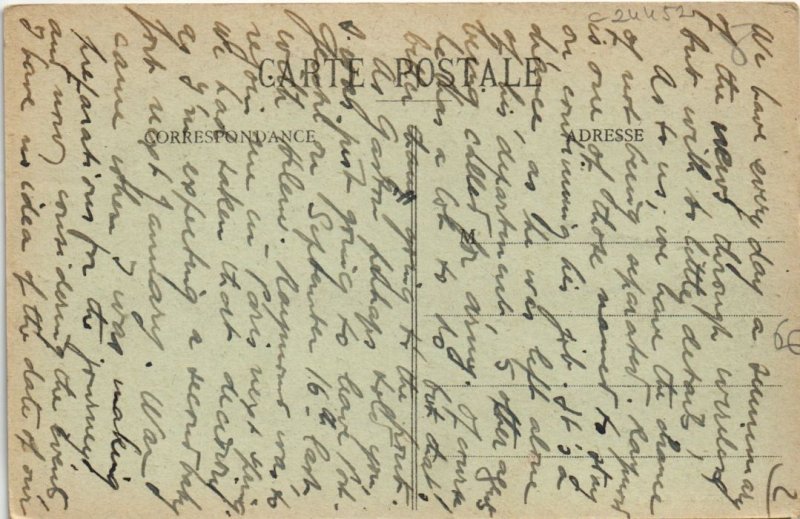 C24452
CARTE POSTALE
CORRESPONDANCE
ADRESSE
M
We have every day a summary
of the news through wireless
but with so little details!
As to us we have the chance
of not being separated.
is one of those named to stay
on continuing his job. It is a
chance as he was left alone
of his department 5 other
being called for army. Of course
he has a lot to do but that's
better than going to the front.
As Gaston perhaps told you
I was just going to leave
on September 16th last
with Raymond was to
rejoin me in Paris next spring
We had taken that decision
as I'm expecting a second baby
for next January. War
came when I was making
preparations for the journey
and now considering the events
I have no idea of the date of our